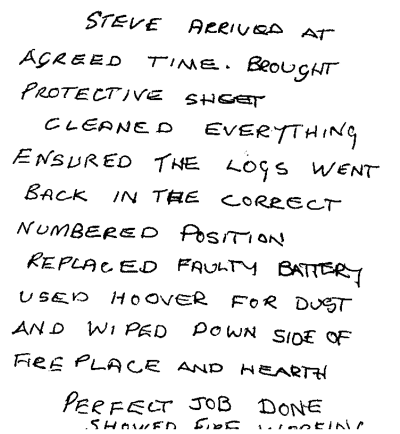 STEVE ARRIVED AT
AGREED TIME. BROUGHT
PROTECTIVE SHEET
CLEANED EVERYTHING
ENSURED THE LOGS WENT
BACK IN THE CORRECT
NUMBERED POSITION
REPLACED FAULTY BATTERY
USED HOOVER FOR DUST
AND WIPED DOWN SIDE OF
FIRE PLACE AND HEARTH
PERFECT JOB DONE
SHOWED FIRE WORKING